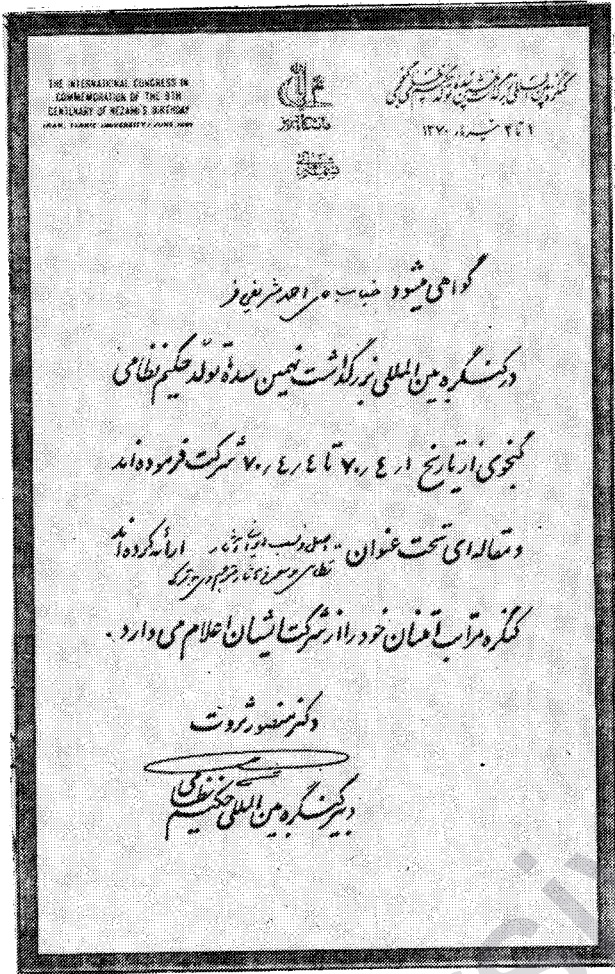 THE INTERNATIONAL CONGRESS IN
COMMEMORATION OF THE 9TH
CENTENARY OF NEZAMI'S BIRTHDAY
IRAN, TABRIZ UNIVERSITY / JUNE, 1991
کنگره بین المللی بزرگداشت نهمین سده تولد حکیم نظامی گنجوی
۱ تا ۴ تیر ماه ۱۳۷۰
دانشگاه تبریز
گواهی میشود جناب آقای احد شریفی فر
در کنگره بین المللی بزرگداشت نهمین سدهٔ تولّد حکیم نظامی
گنجوی از تاریخ ۷۰/۴/۱ تا ۷۰/۴/۴ شرکت فرموده اند
و مقاله ای تحت عنوان اصل و نسب و آثار ارائه کرده اند
نظامی و
کنگره مراتب امتنان خود را از شرکت ایشان اعلام می دارد .
دکتر منصور ثروت
دبیر کنگره بین المللی حکیم نظامی